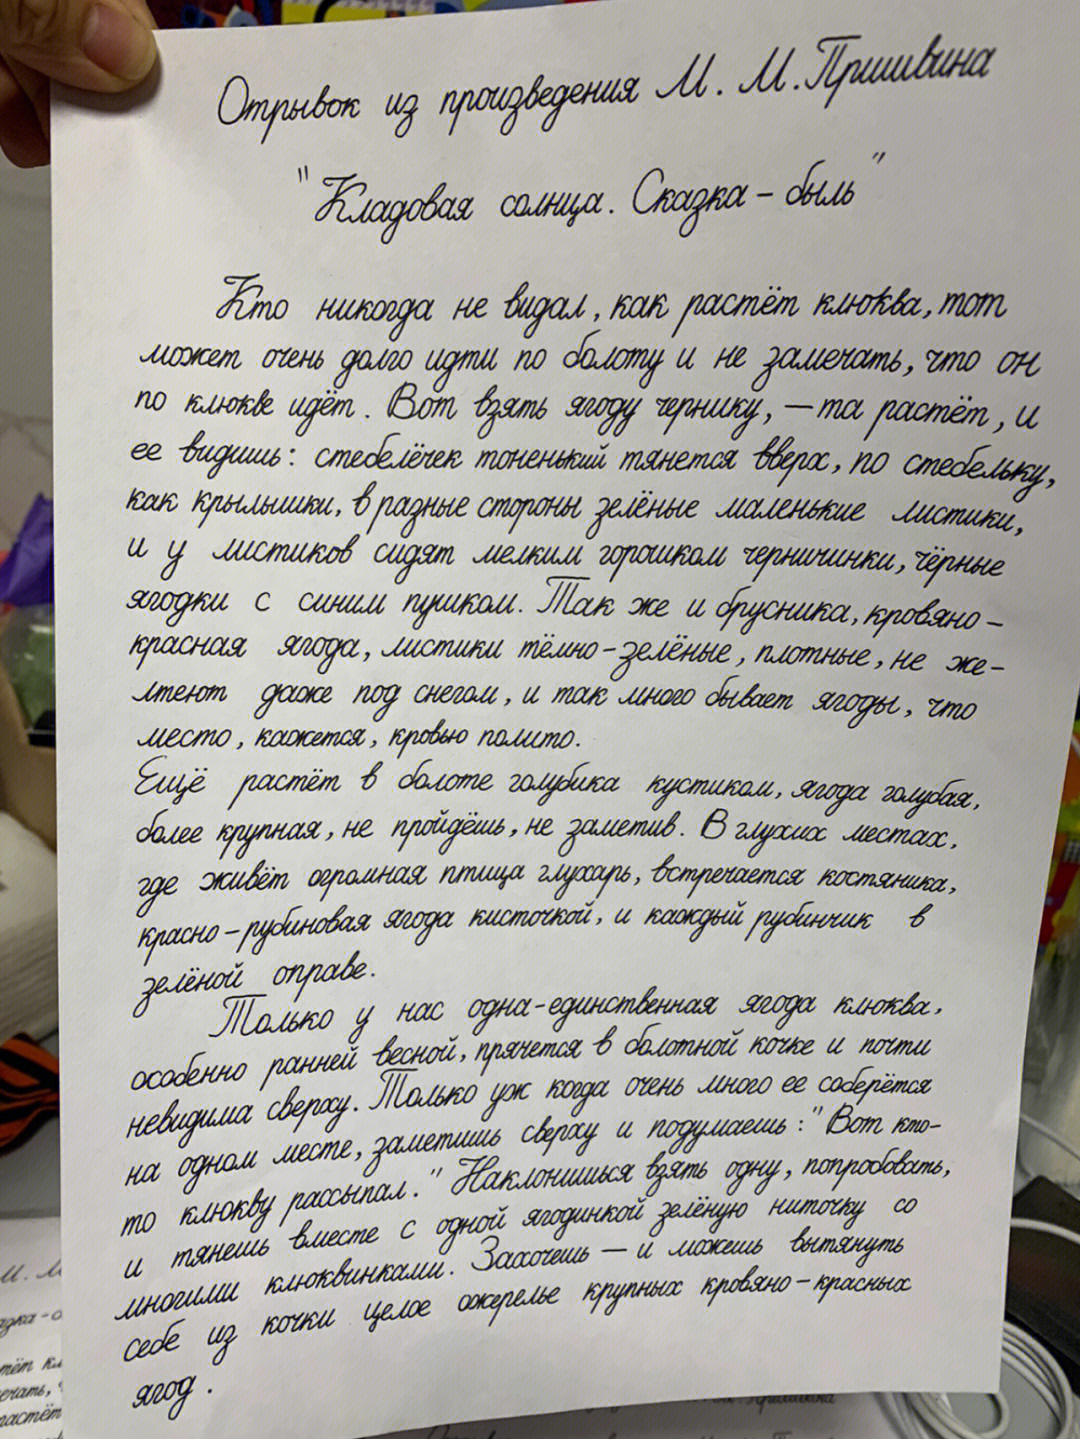 Отрывок из произведения М. М. Пришвина
"Кладовая солнца. Сказка - быль"
Кто никогда не видал, как растёт клюква, тот
может очень долго идти по болоту и не замечать, что он
по клюкве идёт. Вот взять ягоду чернику, — та растёт, и
ее видишь: стебелёчек тоненький тянется вверх, по стебельку,
как крылышки, в разные стороны зелёные маленькие листики,
и у листиков сидят мелким горошком черничинки, чёрные
ягодки с синим пушком. Так же и брусника, кровяно-
красная ягода, листики тёмно-зелёные, плотные, не же-
лтеют даже под снегом, и так много бывает ягоды, что
место, кажется, кровью полито.
Ещё растёт в болоте голубика кустиком, ягода голубая,
более крупная, не пройдёшь, не заметив. В глухих местах,
где живёт огромная птица глухарь, встречается костяника,
красно-рубиновая ягода кисточкой, и каждый рубинчик в
зелёной оправе.
Только у нас одна-единственная ягода клюква,
особенно ранней весной, прячется в болотной кочке и почти
невидима сверху. Только уж когда очень много ее соберётся
на одном месте, заметишь сверху и подумаешь: "Вот кто-
то клюкву рассыпал." Наклонишься взять одну, попробовать,
и тянешь вместе с одной ягодинкой зелёную ниточку со
многими клюквинками. Захочешь — и можешь вытянуть
себе из кочки целое ожерелье крупных кровяно-красных
ягод.